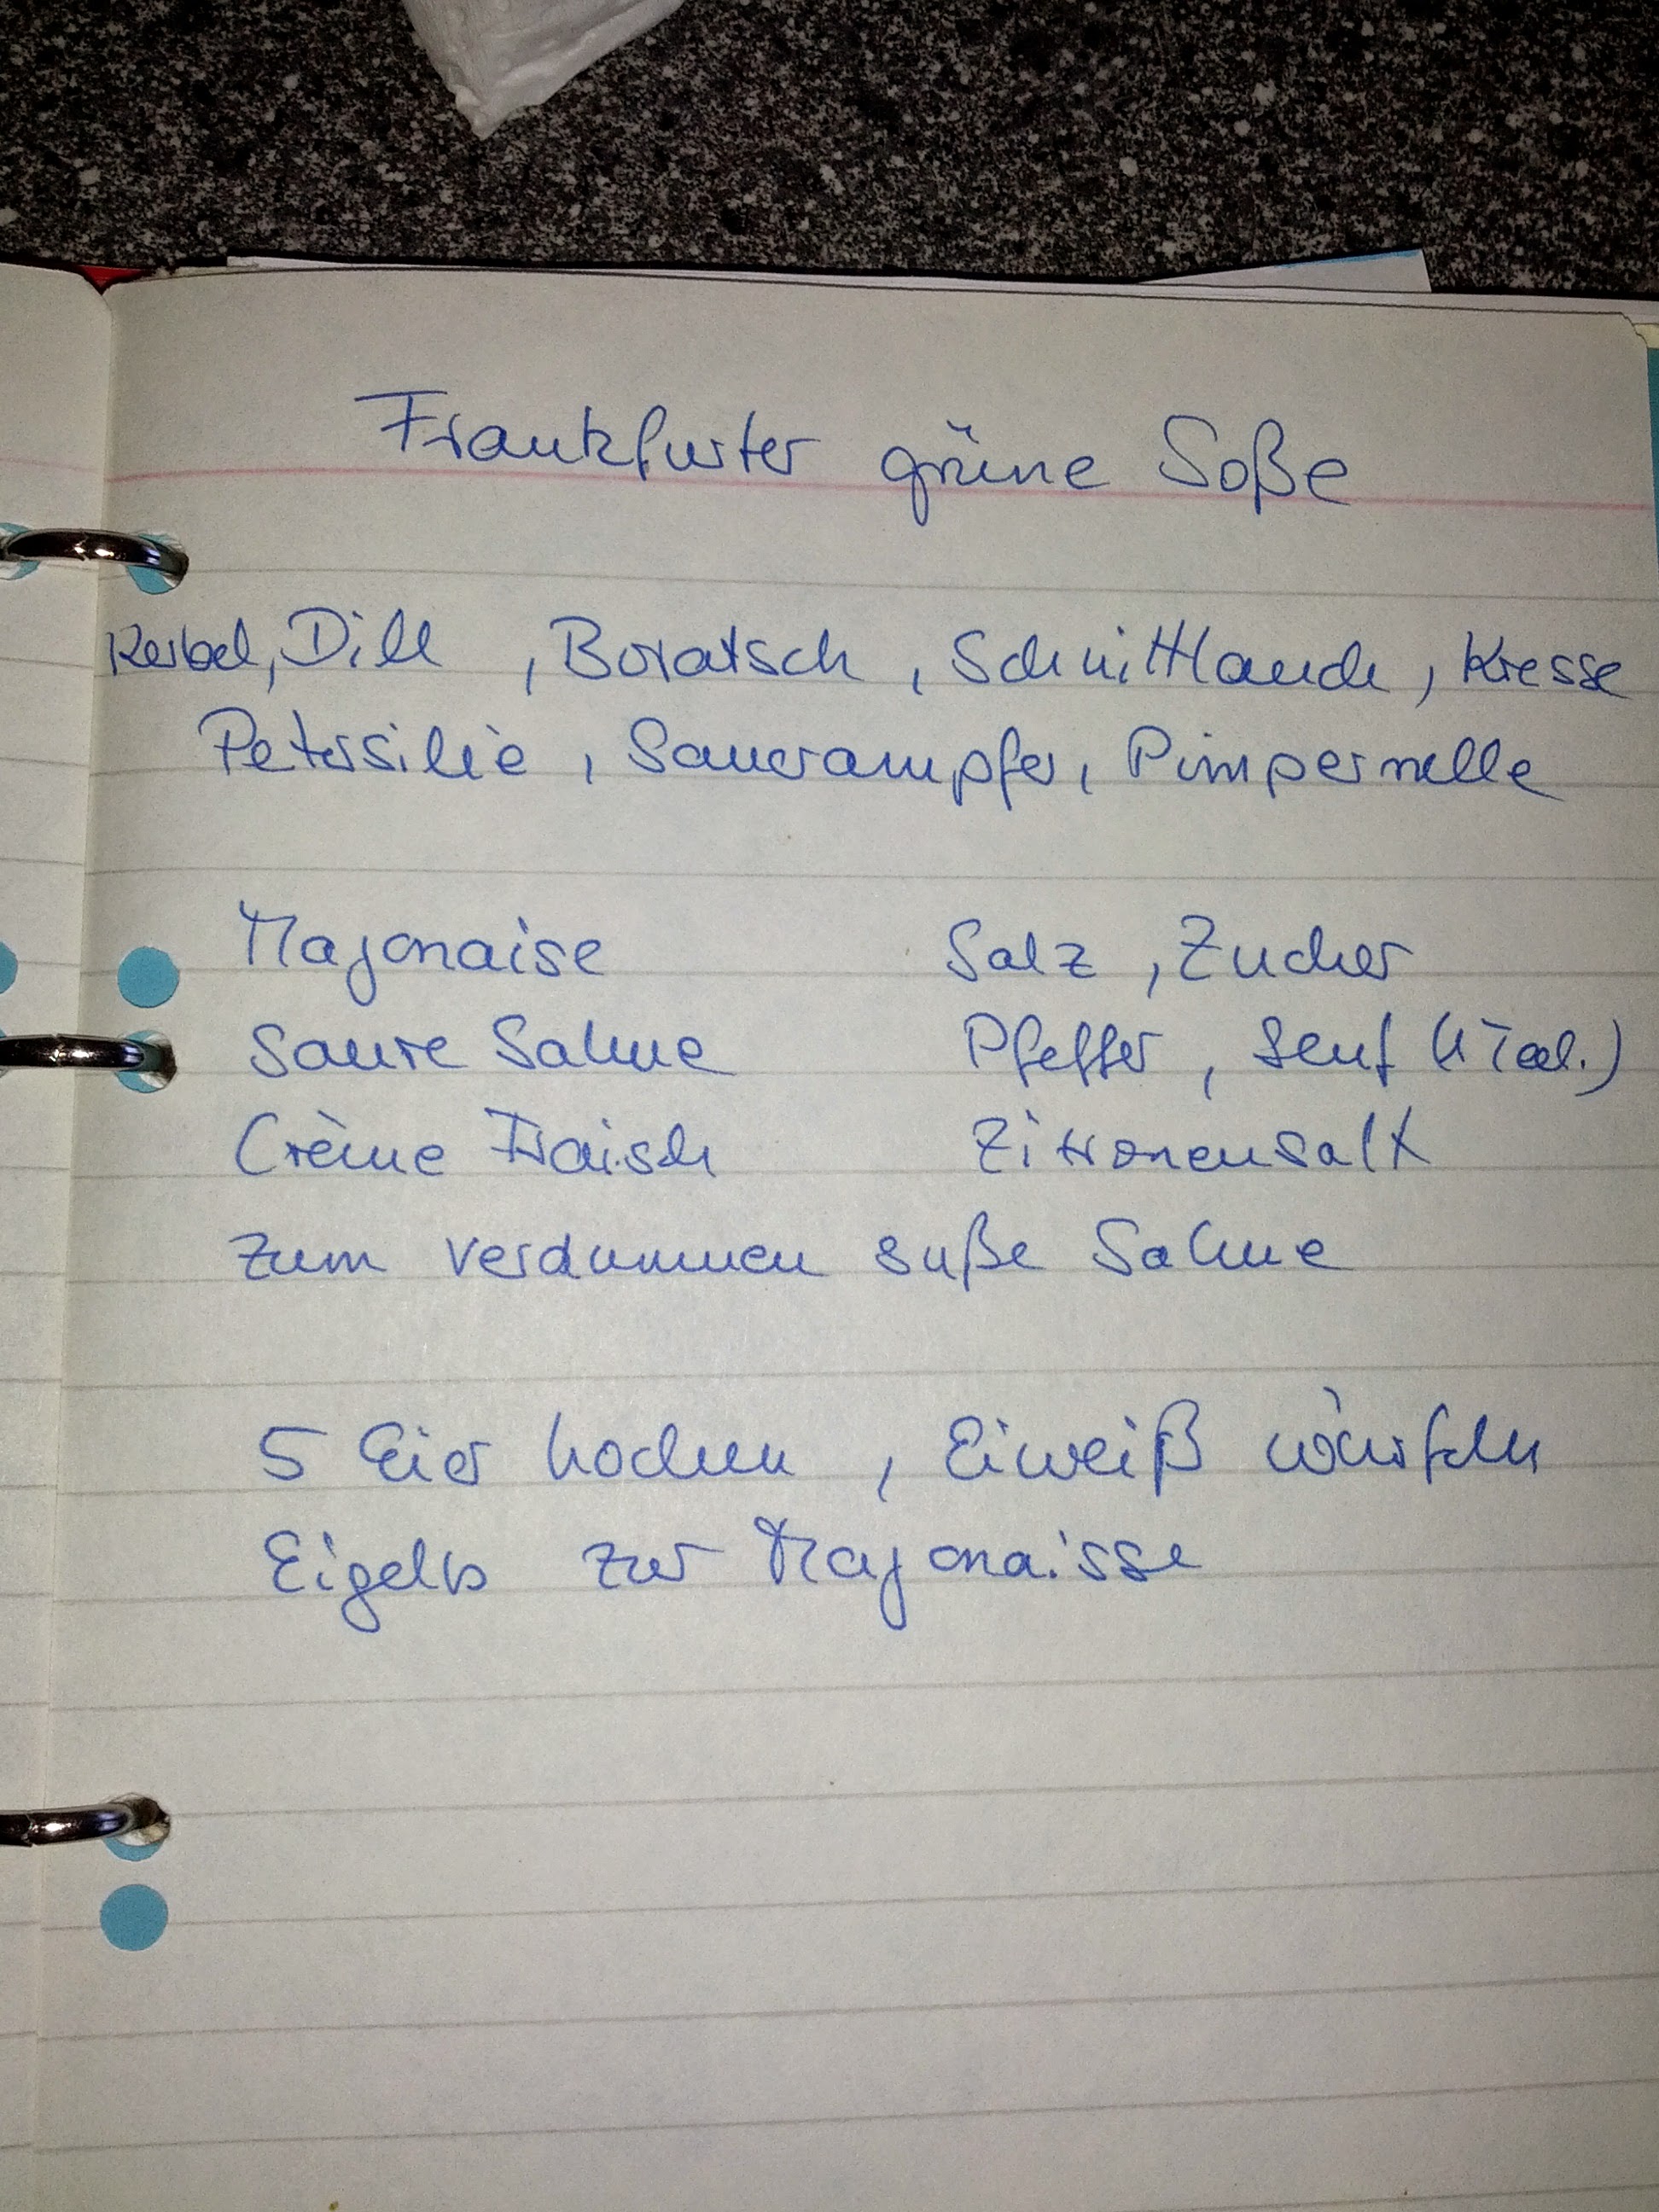 Frankfurter grüne Soße
Kerbel, Dill , Boratsch , Schnittlauch , Kresse
Petersilie , Sauerampfer , Pimpernelle
Majonaise Salz , Zucker
Saure Sahne Pfeffer , Senf (1 Teel.)
Crème Fraisch Zitronensaft
zum verdünnen süße Sahne
5 Eier kochen , Eiweiß würfeln
Eigelb zur Majonaisse